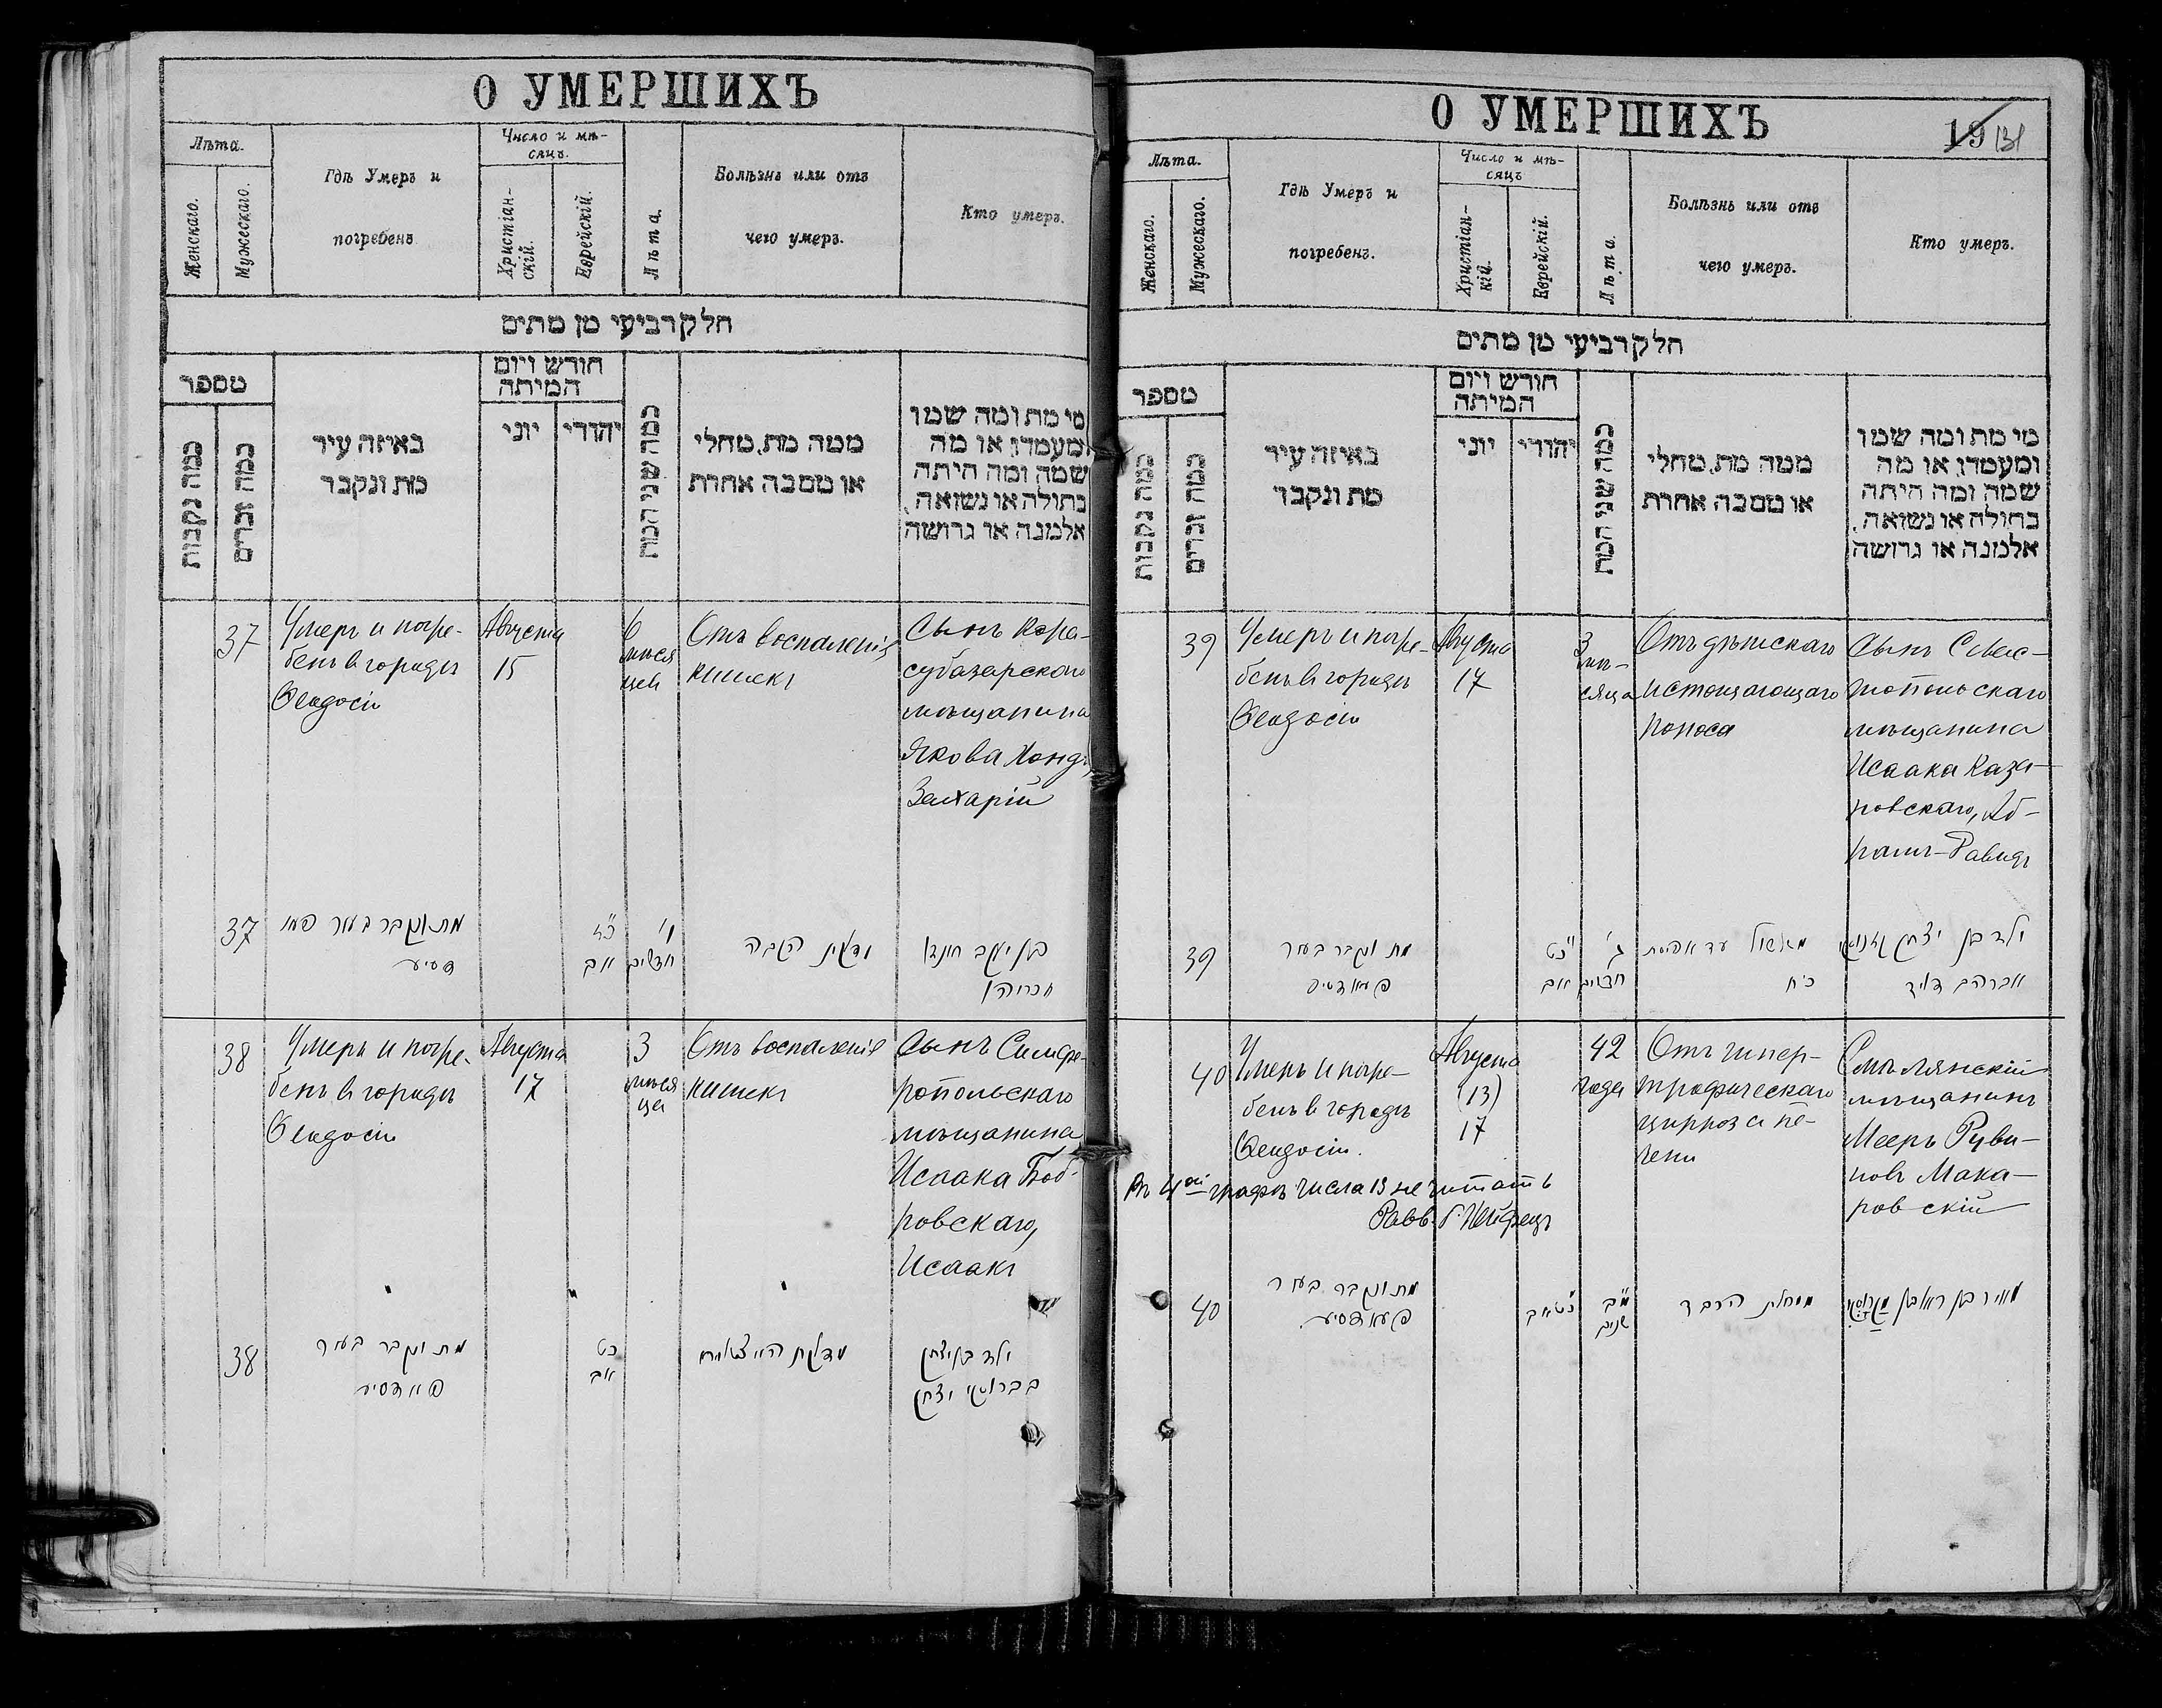 О УМЕРШИХЪ
Лѣта.
Женскаго.
Мужескаго.
Гдѣ Умеръ и
погребенъ
Число и мѣ-
сяцъ.
Христіан-
скій.
Еврейскій.
Лѣта.
Болѣзнь или отъ
чего умеръ.
Кто умеръ.
חלק רביעי מן מתים
מספר
כמה נקבות
כמה זכרים
באיזה עיר
מת ונקבר
חודש ויום
המיתה
יוני
יהודי
כמה שני המת
ממה מת, מחלי
או מסבה אחרת
מי מת ומה שמו
ומעמדו, או מה
שמה ומה היתה
בתולה או נשואה,
אלמנה או גרושה
37
Умеръ и погре-
бенъ в городѣ
Ѳеодосіи
Августа
15
6
мѣся
цев
Отъ воспаленія
кишекъ
Сынъ Кара-
субазарскаго
мѣщанина
Якова Хондо,
Захарій
37
מת ונקבר בעיר
אב
ו'
חדשים
בן יעקב
38
Умеръ и погре-
бенъ в городѣ
Ѳеодосіи
Августа
17
3
мѣся
ца
Отъ воспаленія
кишекъ
Сынъ Симфе-
ропольскаго
мѣщанина
Исаака Боб-
ровскаго,
Исаакъ
38
מת ונקבר בעיר
כט
אב
ילד בן יצחק
יצחק
О УМЕРШИХЪ
19 131
Лѣта.
Женскаго.
Мужескаго.
Гдѣ Умеръ и
погребенъ.
Число и мѣ-
сяцъ
Христіан-
кій.
Еврейскій.
Лѣта.
Болѣзнь или отъ
чего умеръ.
Кто умеръ.
חלק רביעי מן מתים
מספר
כמה נקבות
כמה זכרים
באיזה עיר
מת ונקבר
חודש ויום
המיתה
יוני
יהודי
כמה שני המת
ממה מת, מחלי
או מסבה אחרת
מי מת ומה שמו
ומעמדו, או מה
שמה ומה היתה
בתולה או נשואה,
אלמנה או גרושה
39
Умеръ и погре-
бенъ в городѣ
Ѳеодосіи
Августа
17
3
мѣ-
сяца
Отъ дѣтскаго
истощающаго
поноса
Сынъ Севас-
топольскаго
мѣщанина
Исаака Каза-
ровскаго, Аб-
рамъ-Давидъ
39
מת ונקבר בעיר
כ"ט
אב
ג'
חדשים
ילד בן יצחק
אברהם דוד
40
Умеръ и погре-
бенъ в городѣ
Ѳеодосіи.
Августа
(13)
17
42
года
Отъ гипер-
трофическаго
цирроза пе-
чени
Смѣлянскій
мѣщанинъ
Мееръ Руви-
новъ Мака-
ровскій
Въ 4ой графѣ числа 13 не читать
Равв.
40
מת ונקבר בעיר
כט אב
מ"ב
שנים
מחלת הכבד
מאיר בן ראובן